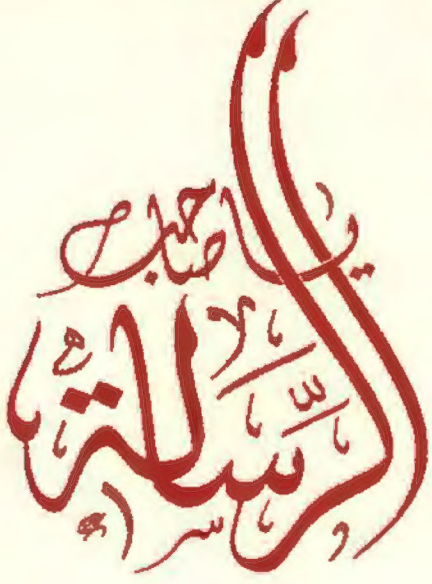 يا صاحب
الرسالة